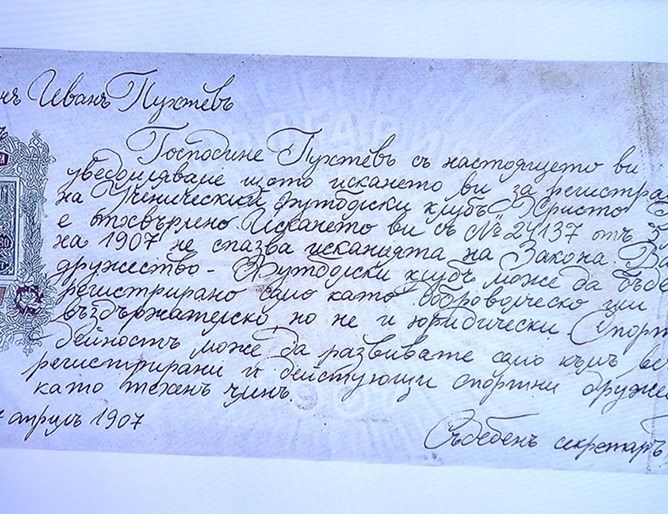 Иванъ Пухтевъ
Господине Пухтевъ съ настоящето ви
уведомяваме щото искането ви за регистра
на Ученически футболски клубъ Христо
е отхвърлено. Искането ви съ № 24137 отъ
на 1907 не спазва исканията на Закона.
дружество - Футболски клубъ може да бъде
регистрирано само като доброворческо или
въздържателско, но не и юридически. Спорт
дейностъ може да развивате само къмъ ве
регистрирани и действующи спортни друже
като техенъ члинъ.
априлъ 1907
Съдебенъ секретаръ